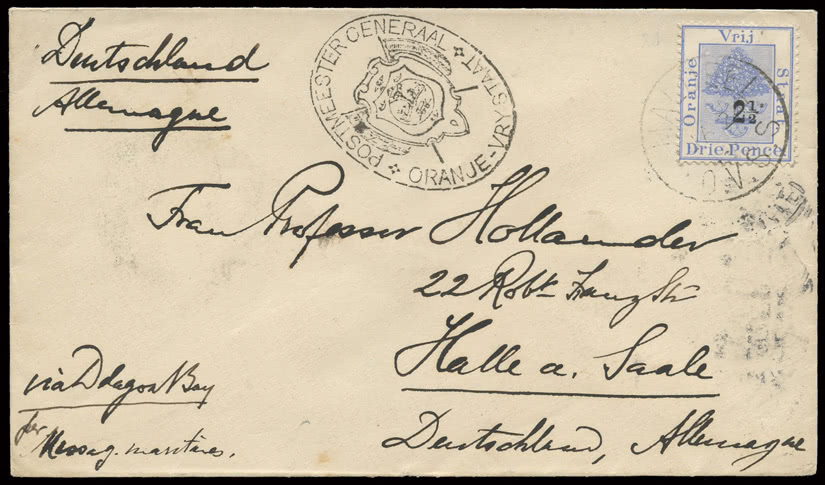 Deutschland
Allemagne
POSTMEESTER GENERAAL
ORANJE-VRY STAAT
Vrij
Oranje
Staat
2½
Drie Pence
Frau Professor Hollaender
22 Robt Franz Str
Halle a. Saale
Deutschland, Allemagne
via Delagoa Bay
per
Messag. maritimes.